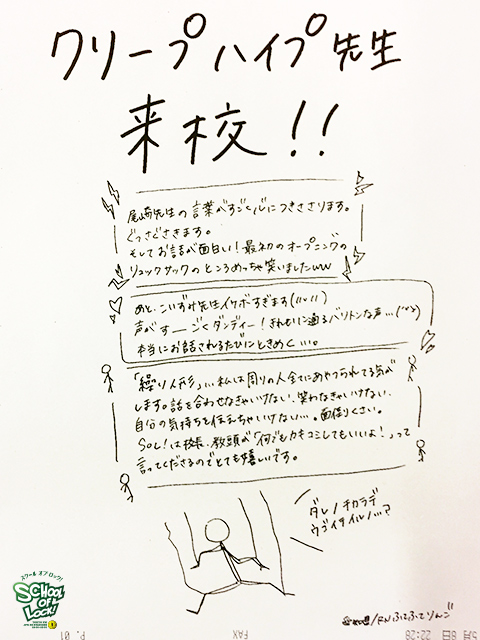 クリープハイプ先生
来校!!
尾崎先生の言葉がすごく心につきささります。
ぐっさどさきます。
そしてお話が面白い!最初のオープニングの
リュックサックのところめっちゃ笑いましたww
あと、こいずみ先生イケボすぎます
声がすーごくダンディー!きれいに通るバリトンな声…
本当にお話されるたびにときめく…。
「繰り人形」…私は周りの人全てにあやつられてる気が
します。話を合わせなきゃいけない、笑わなきゃいけない、
自分の気持ちを伝えちゃいけない…。面倒くさい。
SOL!は校長、教頭が「何でもカキコミしてもいいよ!」って
言ってくださるのでとても嬉しいです。
ダレノチカラデ
ウゴイテイルノ…?
スクール オブ ロック!
SCHOOL OF LOCK!
/RN ふてふてりんご
5月 6日 22:28
FAX
P. 01